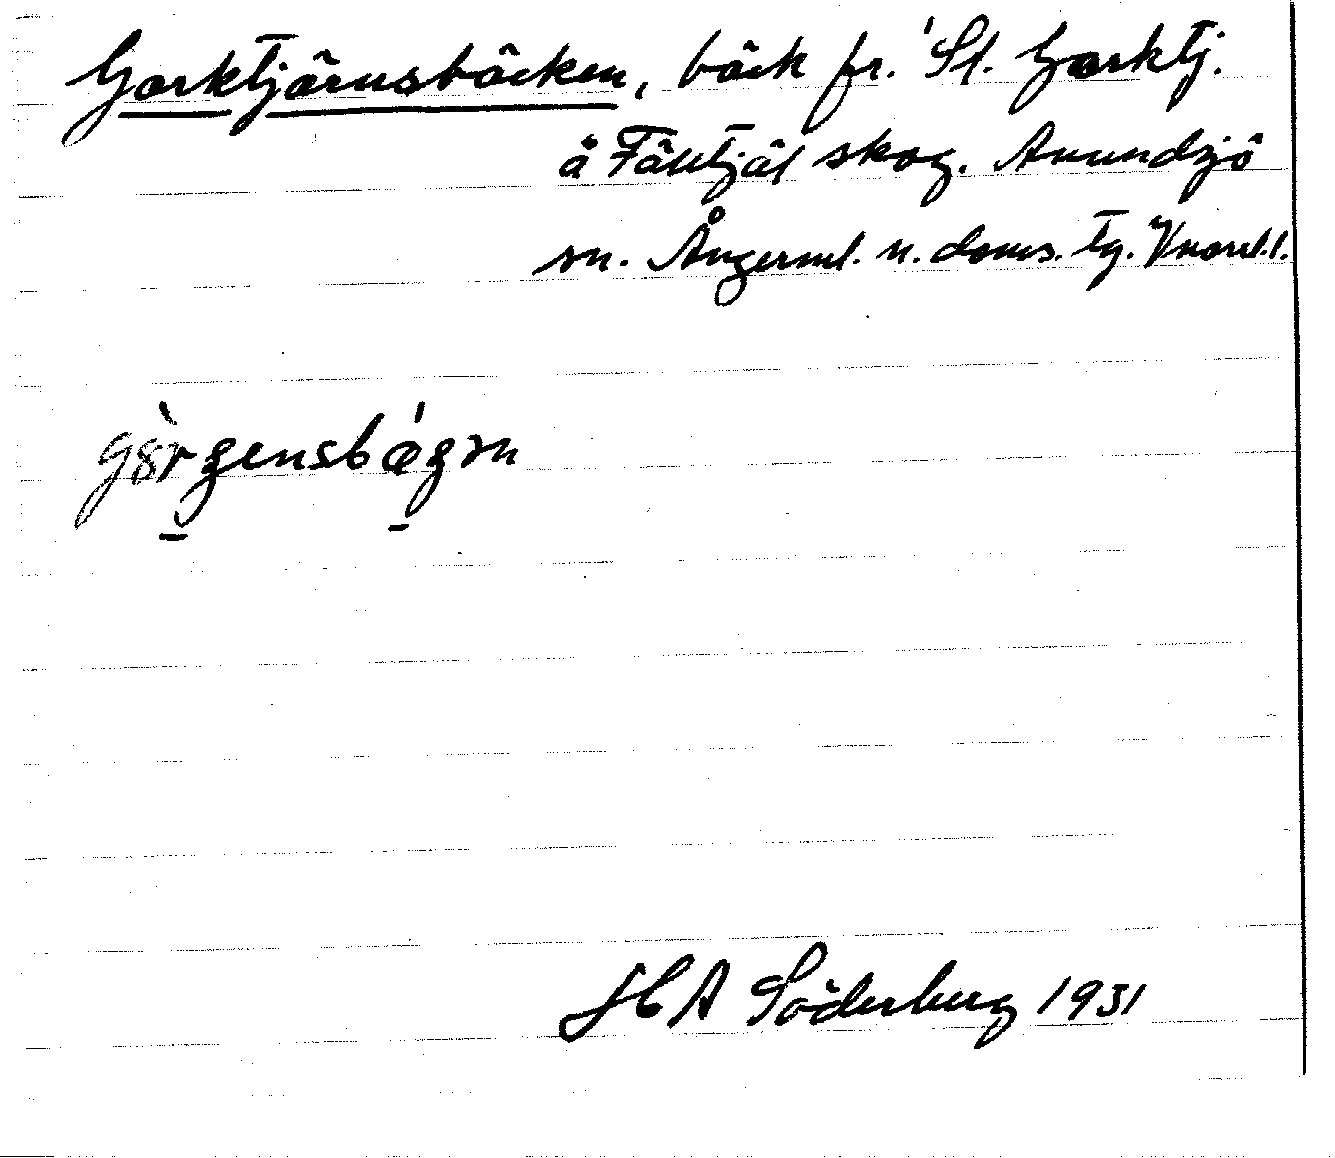 Gorktjärnsbäcken, bäck fr. St. Gorktj.
å Fälltjäl skog. Anundsjö
sn. Ångerml. n. doms. tg. Vnorrl. l.
HA Söderberg 1931